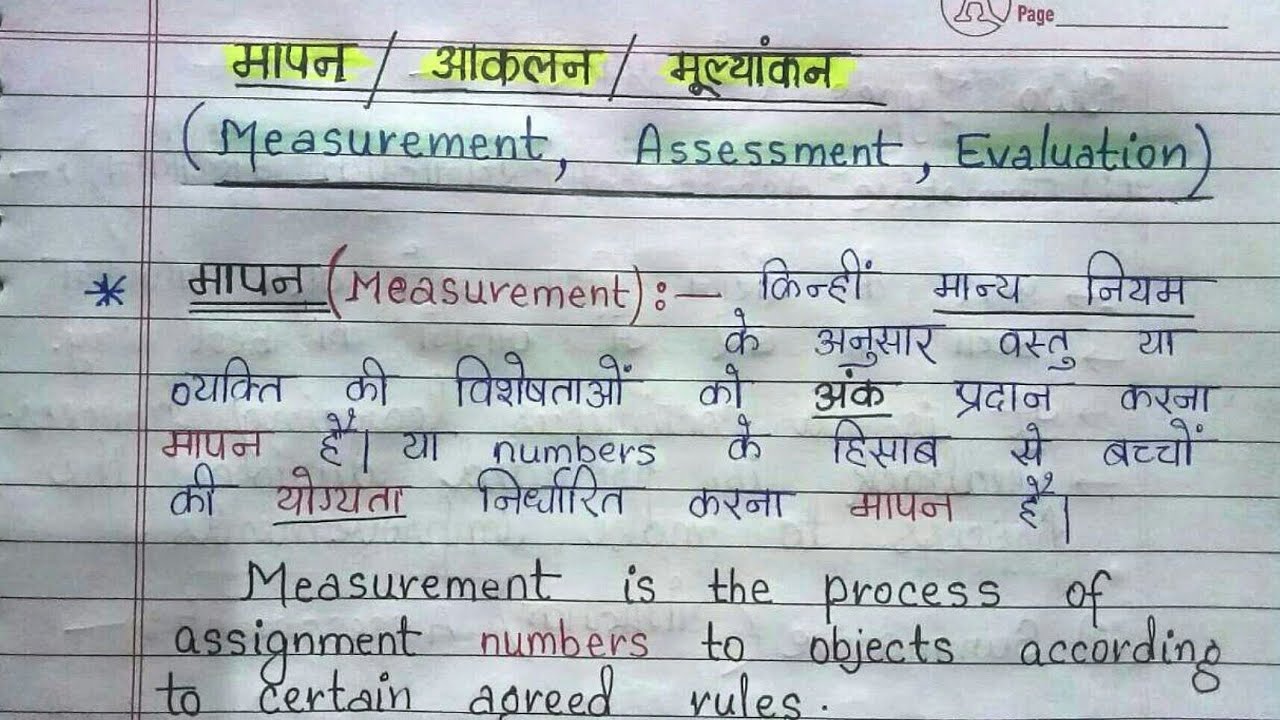 Page
मापन / आकलन / मूल्यांकन
(Measurement, Assessment, Evaluation)
* मापन (Measurement):— किन्हीं मान्य नियम
के अनुसार वस्तु या
व्यक्ति की विशेषताओं को अंक प्रदान करना
मापन है। या numbers के हिसाब से बच्चों
की योग्यता निर्धारित करना मापन है।
Measurement is the process of
assignment numbers to objects according
to certain agreed rules.